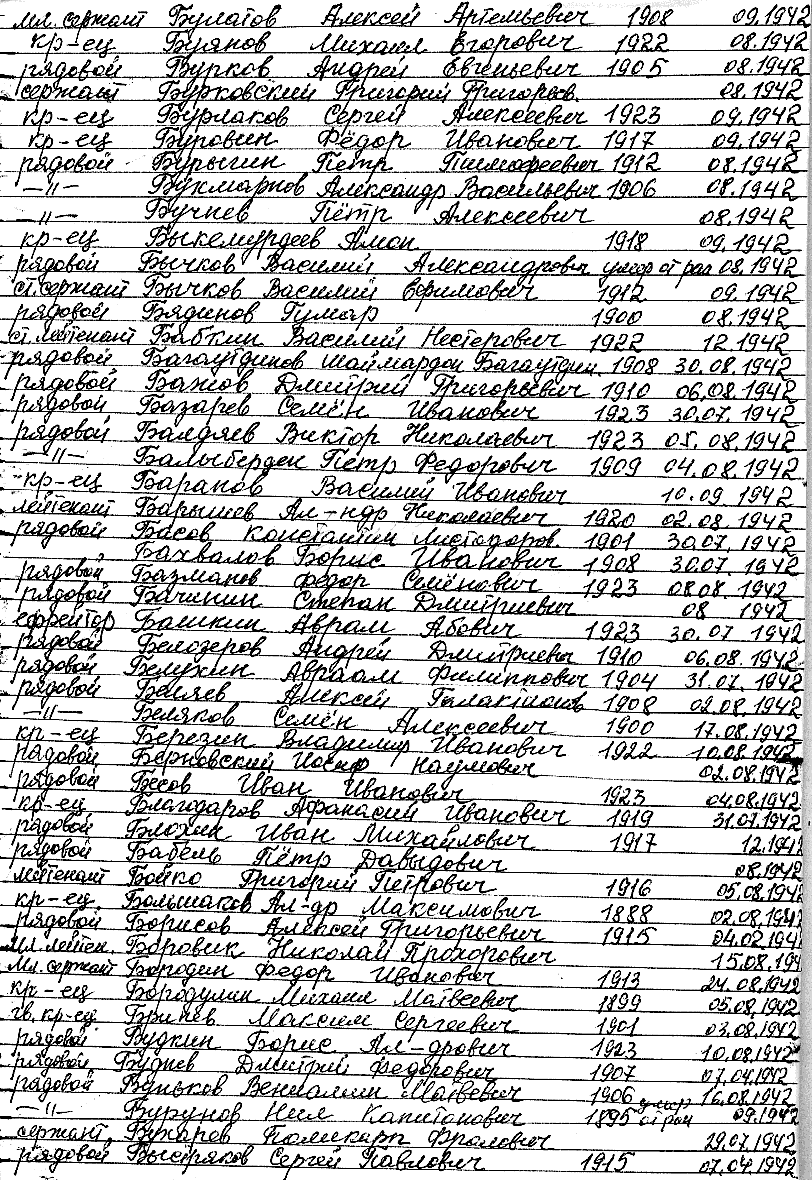 мл. сержант Булатов Алексей Артемьевич 1908 09.1942
кр-ец Буянов Михаил Егорович 1922 08.1942
рядовой Бурков Андрей Евгеньевич 1905 08.1942
сержант Бурковский Григорий Григорьев. 08.1942
кр-ец Бурлаков Сергей Алексеевич 1923 09.1942
кр-ец Буровин Фёдор Иванович 1917 09.1942
рядовой Бурыгин Пётр Тимофеевич 1912 08.1942
—"— Букмарнов Александр Васильевич 1906 08.1942
—"— Бучнев Пётр Алексеевич 08.1942
кр-ец Выкемурдеев Амон 1918 09.1942
рядовой Бычков Василий Александрович умер от ран 08.1942
ст. сержант Бычков Василий Ефимович 1912 09.1942
рядовой Бядинов Гумар 1900 08.1942
ст. лейтенант Бабкин Василий Нестерович 1922 12.1942
рядовой Багаутдинов Шаймардон Багаутдин. 1908 30.08.1942
рядовой Бажов Дмитрий Григорьевич 1910 06.08.1942
рядовой Базарев Семён Иванович 1923 30.07.1942
рядовой Балдяев Виктор Николаевич 1923 05.08.1942
—"— Балыберден Пётр Федорович 1909 04.08.1942
кр-ец Баранов Василий Иванович 10.09.1942
лейтенант Барышев Ал-ндр Николаевич 1920 02.08.1942
рядовой Басов Константин 1901 30.07.1942
Бахвалов Борис Иванович 1908 30.07.1942
рядовой Базманов Федор Семёнович 1923 08.08.1942
рядовой Бачинин Степан Дмитриевич 08 1942
ефрейтор Башкин Аврам Абович 1923 30.07.1942
рядовой Белозеров Андрей Дмитриевич 1910 06.08.1942
рядовой Белухин Авраам Филиппович 1904 31.07.1942
рядовой Беляев Алексей 1908 02.08.1942
—"— Беляков Семён Алексеевич 1900 17.08.1942
кр-ец Березин Владимир Иванович 1922 10.08.1942
рядовой Берновский Иосиф Наумович 02.08.1942
рядовой Бесов Иван Иванович 1923 04.08.1942
кр-ец Благодаров Афанасий Иванович 1919 31.07.1942
рядовой Блохин Иван Михайлович 1917 12.194
рядовой Бабель Пётр Давыдович 08.1942
лейтенант Бойко Григорий Петрович 1916 05.08.1942
кр-ец Большаков Ал-др Максимович 1888 02.08.194
рядовой Борисов Алексей Григорьевич 1915 04.02.194
мл. лейтен. Боровик Николай Прохорович 15.08.194
мл. сержант Бородин Федор Иванович 1913 24.08.1942
кр-ец Бородулин Михаил Матвеевич 1899 05.08.1942
гв. кр-ец Бринев Максим Сергеевич 1901 03.08.1942
рядовой Будкин Борис Ал-дрович 1923 10.08.1942
рядовой Буднев Дмитрий Федорович 1907 07.04.1942
рядовой Буньков Вениамин Матвеевич 1906 16.08.1942
—"— Бурунов Нил Капитонович 1895 умер от ран 09.1942
сержант Бухаров Поликарп Фролович 29.07.1942
рядовой Быстряков Сергей Павлович 1915 07.04.1942